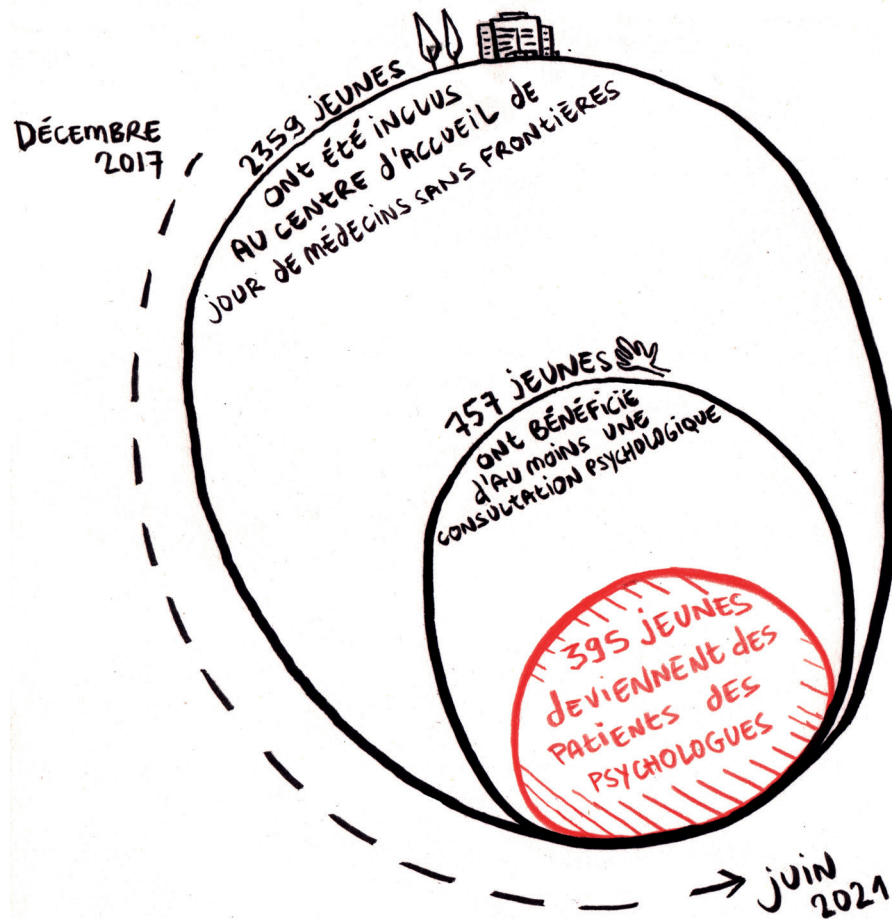 DÉCEMBRE
2017
2359 JEUNES
ONT ÉTÉ INCLUS
AU CENTRE D'ACCUEIL DE
JOUR DE MÉDECINS SANS FRONTIÈRES
757 JEUNES
ONT BÉNÉFICIÉ
D'AU MOINS UNE
CONSULTATION PSYCHOLOGIQUE
395 JEUNES
DEVIENNENT DES
PATIENTS DES
PSYCHOLOGUES
JUIN
2021